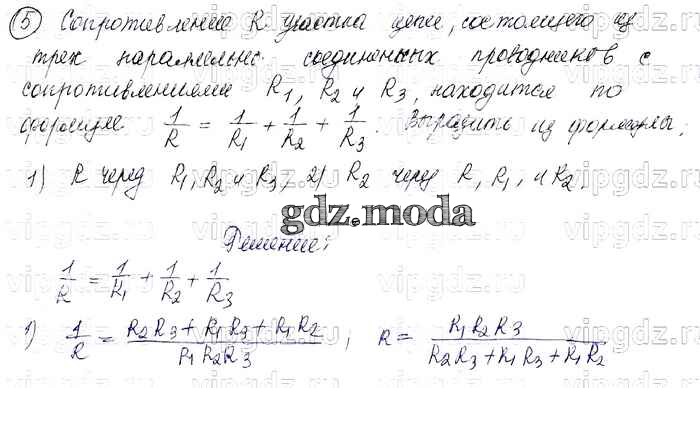 ⑤ Сопротивление R участка цепи, состоящего из
трех параллельно соединенных проводников с
сопротивлениями R₁, R₂ и R₃, находится по
формуле 1/R = 1/R₁ + 1/R₂ + 1/R₃. Выразить из формулы:
1) R через R₁, R₂ и R₃, 2) R₂ через R, R₁, и R₂.
gdz.moda
Решение:
1/R = 1/R₁ + 1/R₂ + 1/R₃
1) 1/R = (R₂R₃ + R₁R₃ + R₁R₂)/(R₁R₂R₃) ; R = (R₁R₂R₃)/(R₂R₃ + R₁R₃ + R₁R₂)
vipgdz.ru